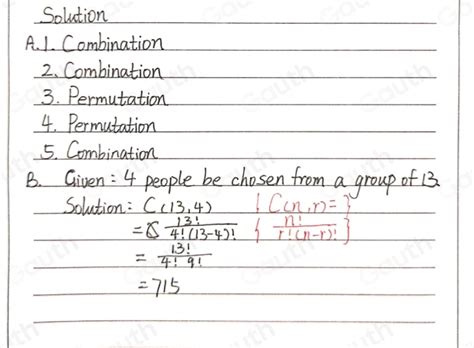 Solution
A.1. Combination
2. Combination
3. Permutation
4. Permutation
5. Combination
B. Given: 4 people be chosen from a group of 13
Solution: C(13,4) { C(n,r)= }
= 13! / 4!(13-4)! { n! / r!(n-r)! }
= 13! / 4! 9!
= 715
Gauth